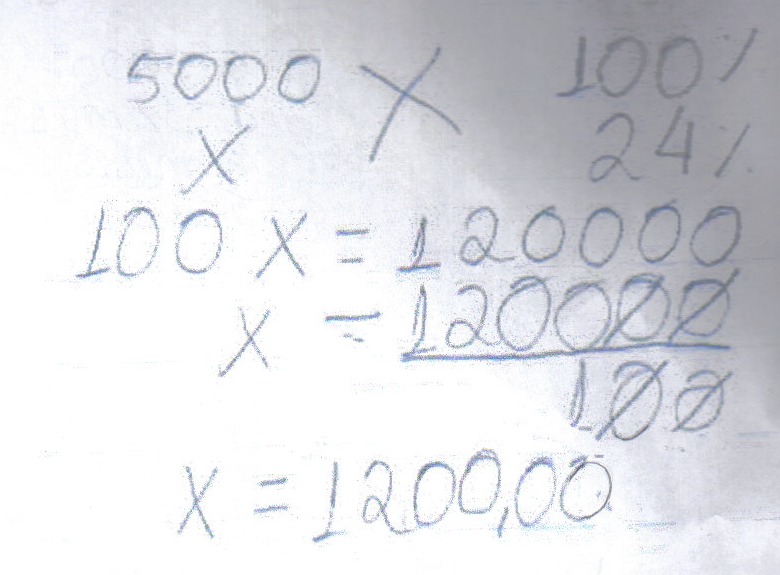 5000 X 100%
X 24%
100 X = 120000
X = 120000
100
X = 1200,00